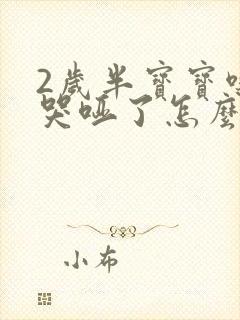 2歲半寶寶嗓
哭啞了怎麼
小布